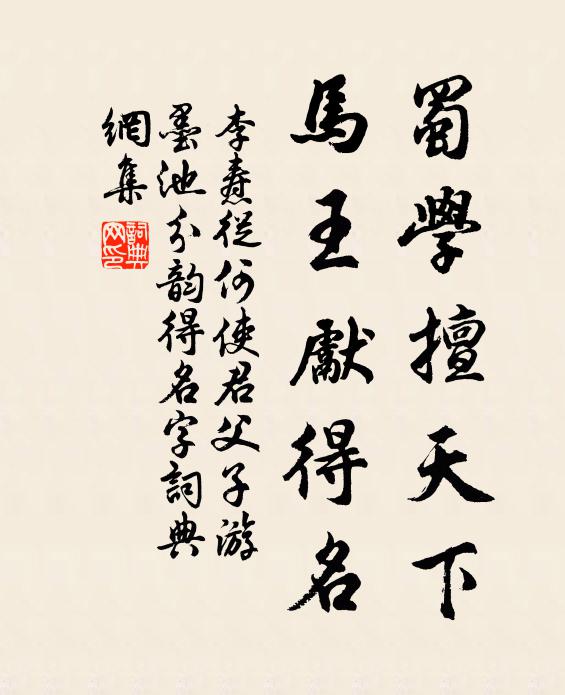 蜀學擅天下
馬王獻得名
李燾從何使君父子游
墨池分韵得名字詞典
網集
詞典网印